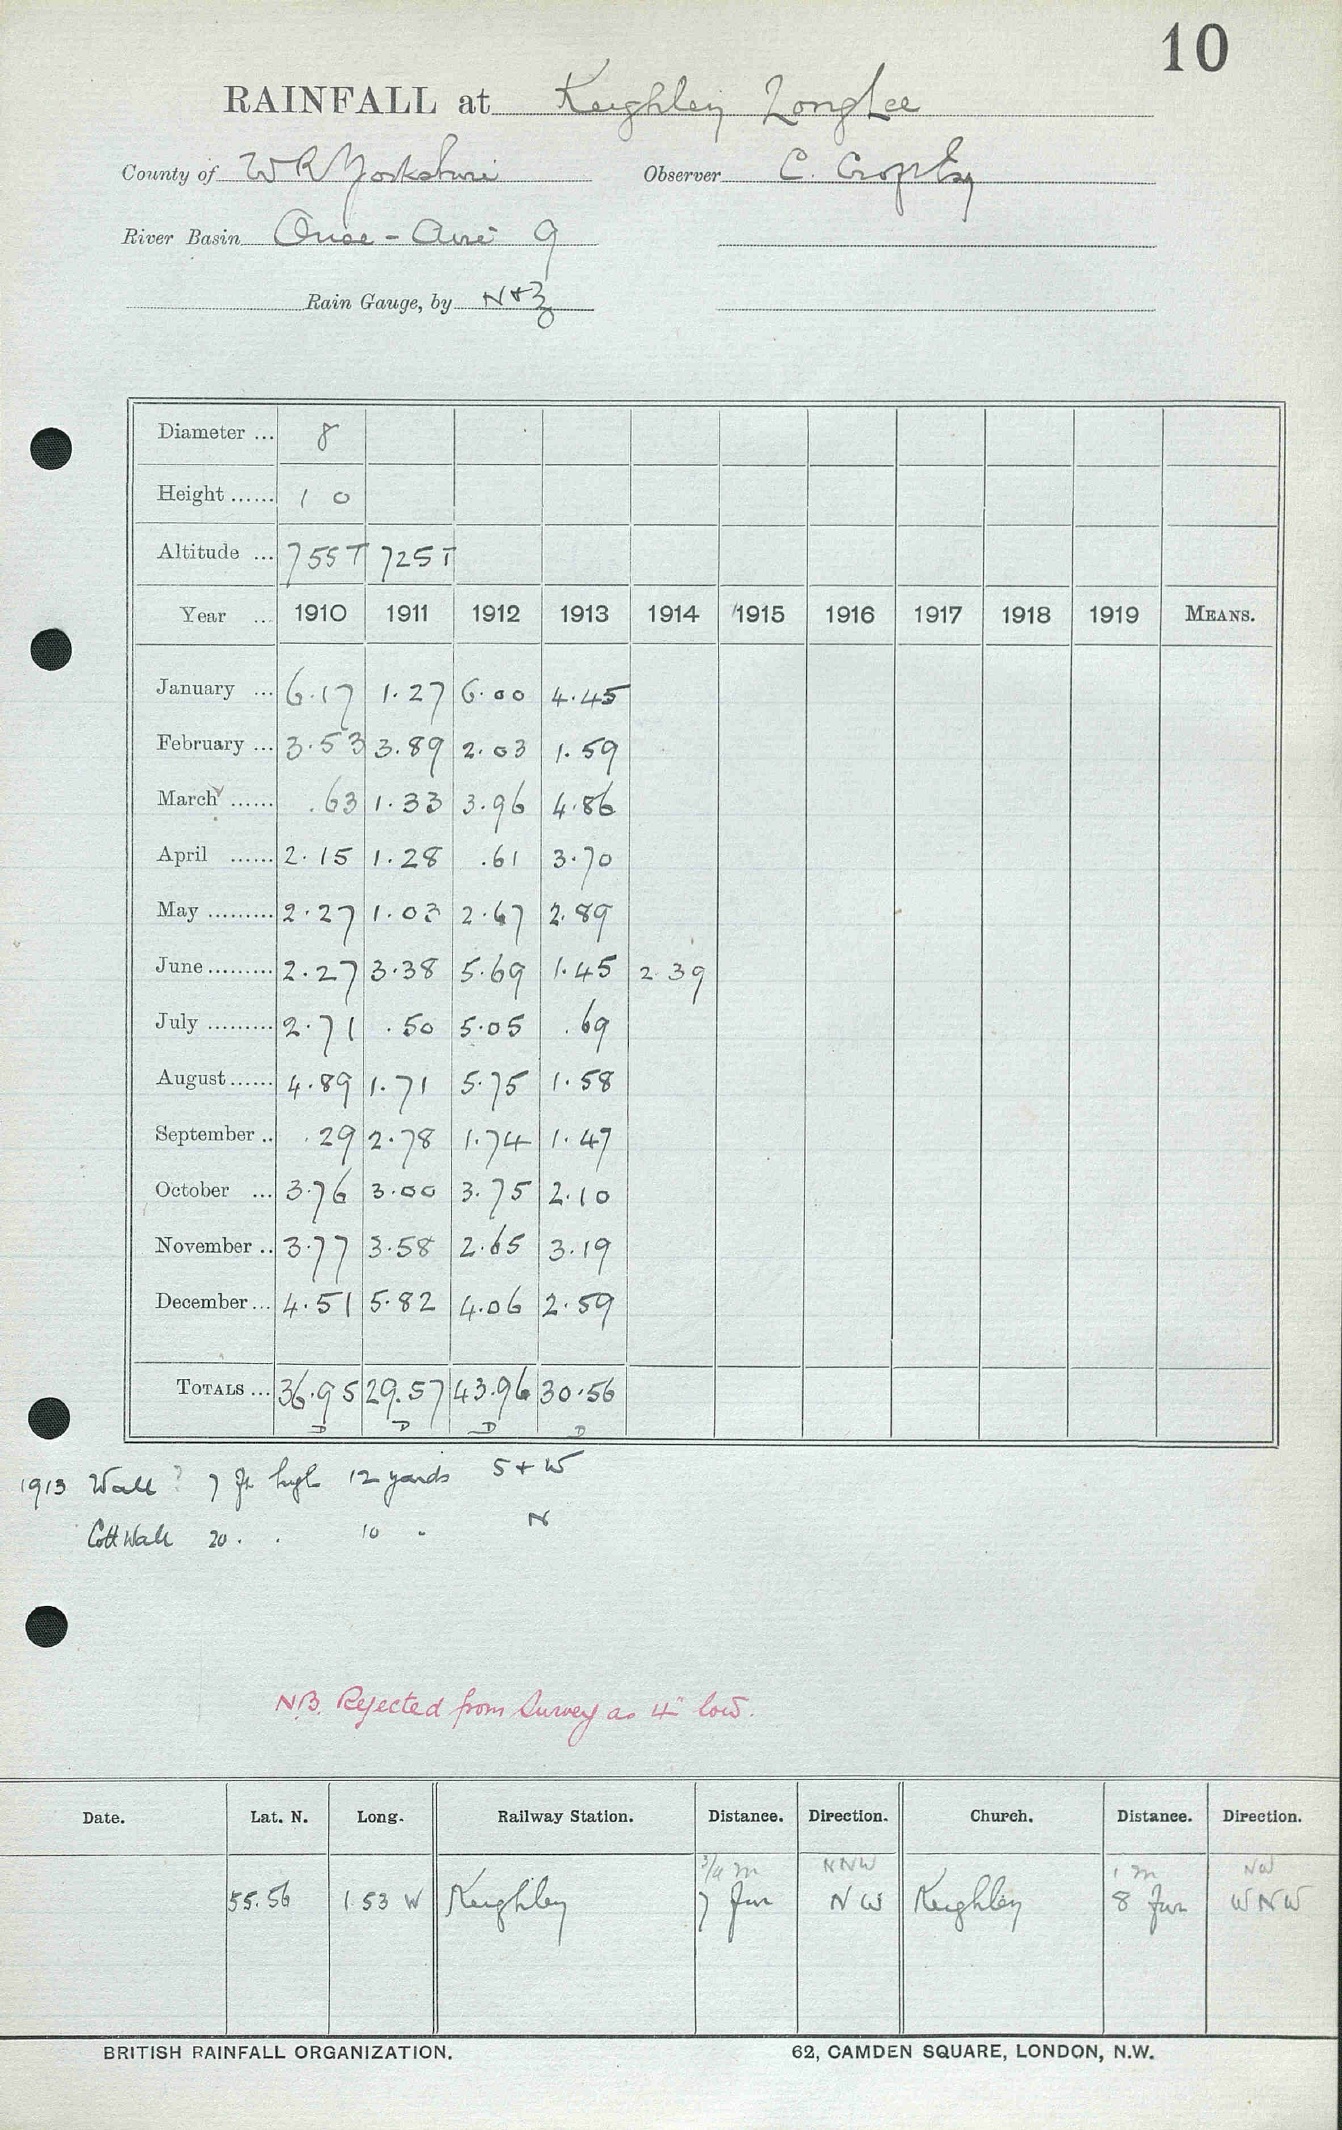 10
RAINFALL at Keighley Long Lee
County of W R Yorkshire Observer C. Cropley
River Basin Ouse - Aire 9
Rain Gauge, by N+Z
Diameter ... 8
Height ...... 1 0
Altitude ... 755 T 725 T
Year ... 1910 1911 1912 1913 1914 1915 1916 1917 1918 1919 MEANS.
January ... 6.17 1.27 6.00 4.45
February ... 3.53 3.89 2.03 1.59
March ...... .63 1.33 3.96 4.86
April ...... 2.15 1.28 .61 3.70
May ......... 2.27 1.03 2.67 2.89
June ......... 2.27 3.38 5.69 1.45 2.39
July ......... 2.71 .50 5.05 .69
August ...... 4.89 1.71 5.75 1.58
September .. .29 2.78 1.74 1.47
October ... 3.76 3.00 3.75 2.10
November .. 3.77 3.58 2.65 3.19
December ... 4.51 5.82 4.06 2.59
TOTALS ... 36.95 29.57 43.96 30.56
D D D D
1913 Wall ? 7 ft high 12 yards S + W
Cott Wall 20 . . 10 . N
N.B. Rejected from Survey as 4" low.
Date. Lat. N. Long. Railway Station. Distance. Direction. Church. Distance. Direction.
3/4 m NNW 1 m NW
55.56 1.53 W Keighley 7 fur NW Keighley 8 fur WNW
BRITISH RAINFALL ORGANIZATION. 62, CAMDEN SQUARE, LONDON, N.W.